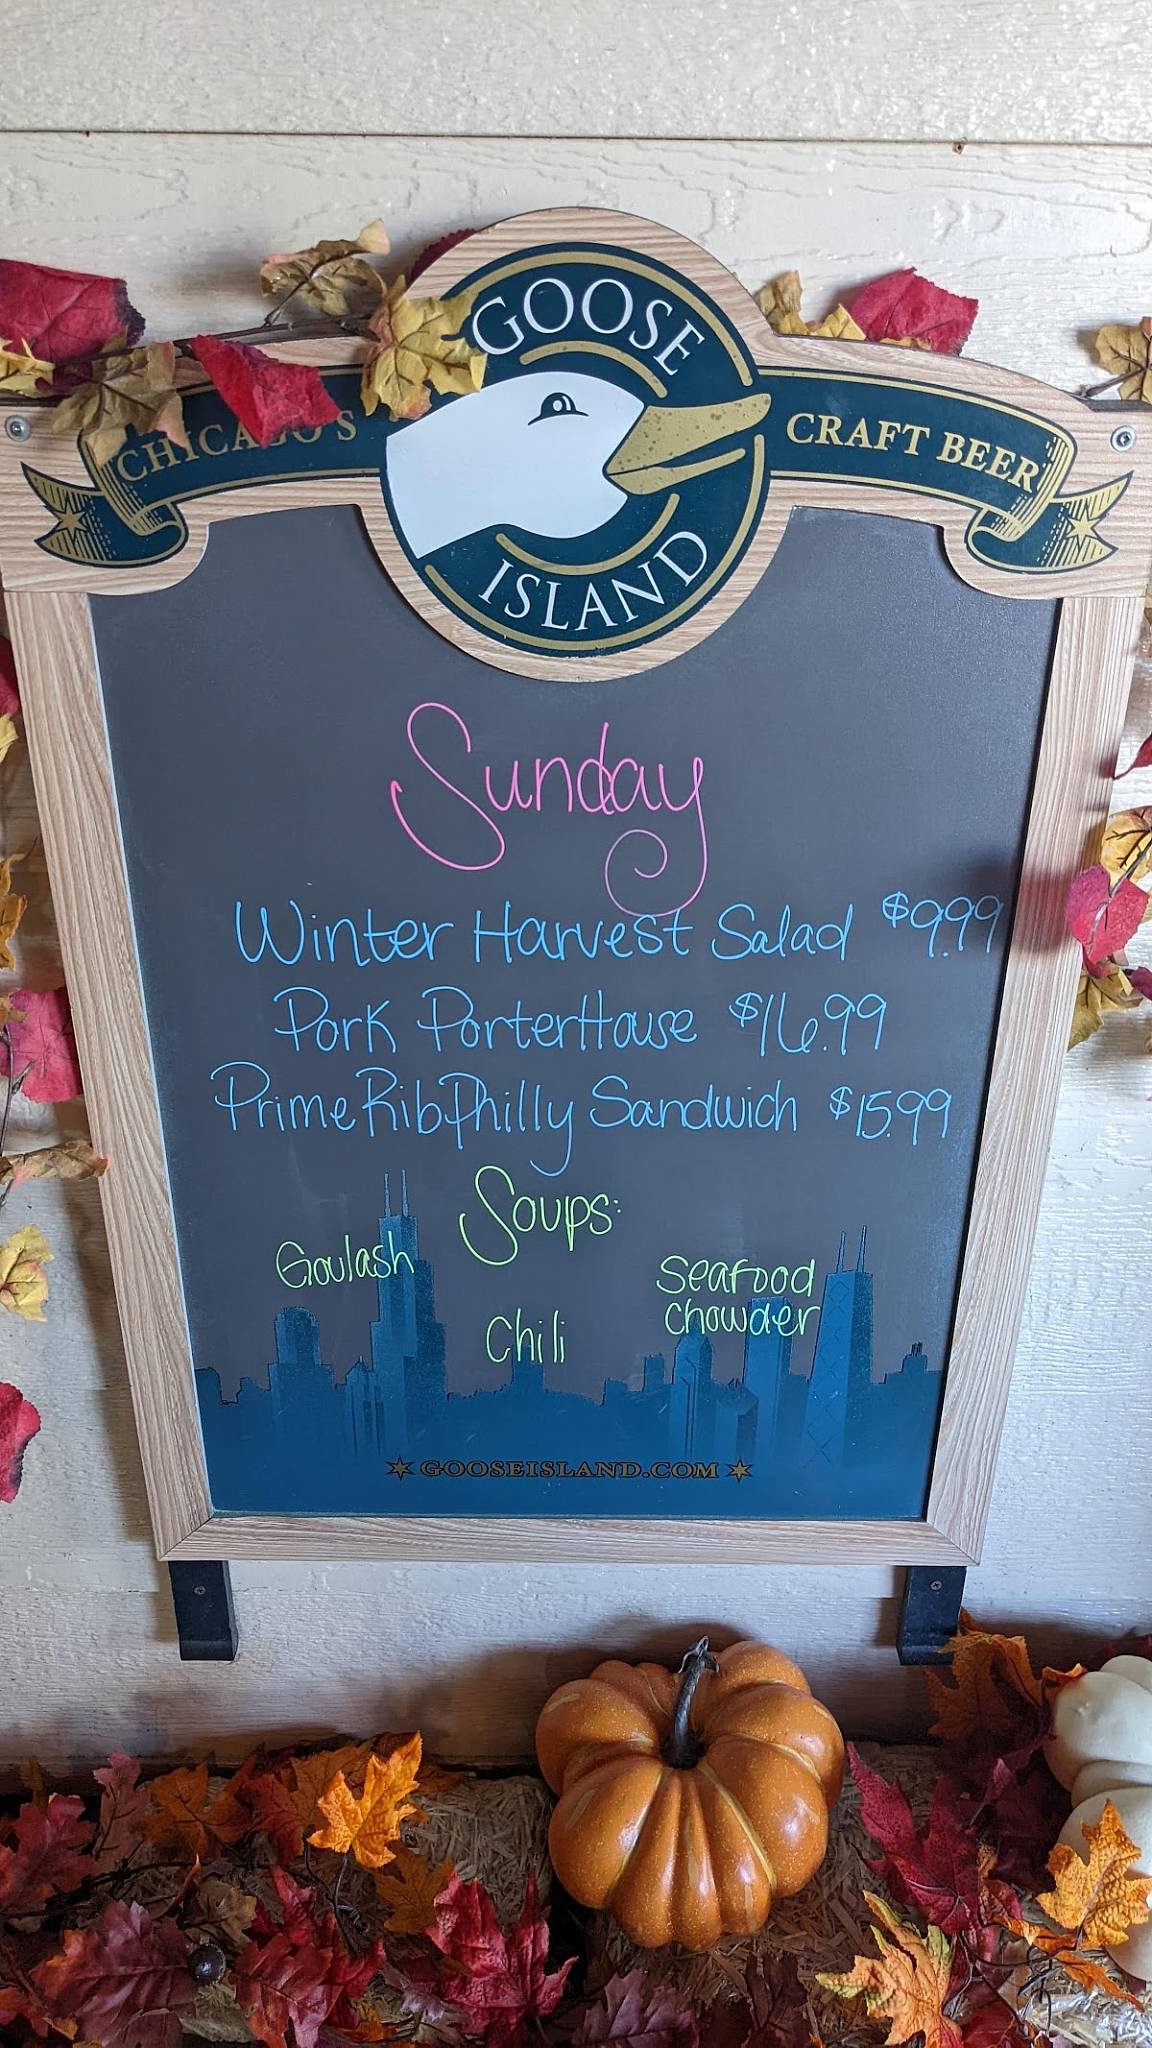 GOOSE
CHICAGO'S CRAFT BEER
ISLAND
Sunday
Winter Harvest Salad $9.99
Pork PorterHouse $16.99
Prime Rib Philly Sandwich $15.99
Soups:
Goulash
Seafood
Chowder
Chili
GOOSEISLAND.COM